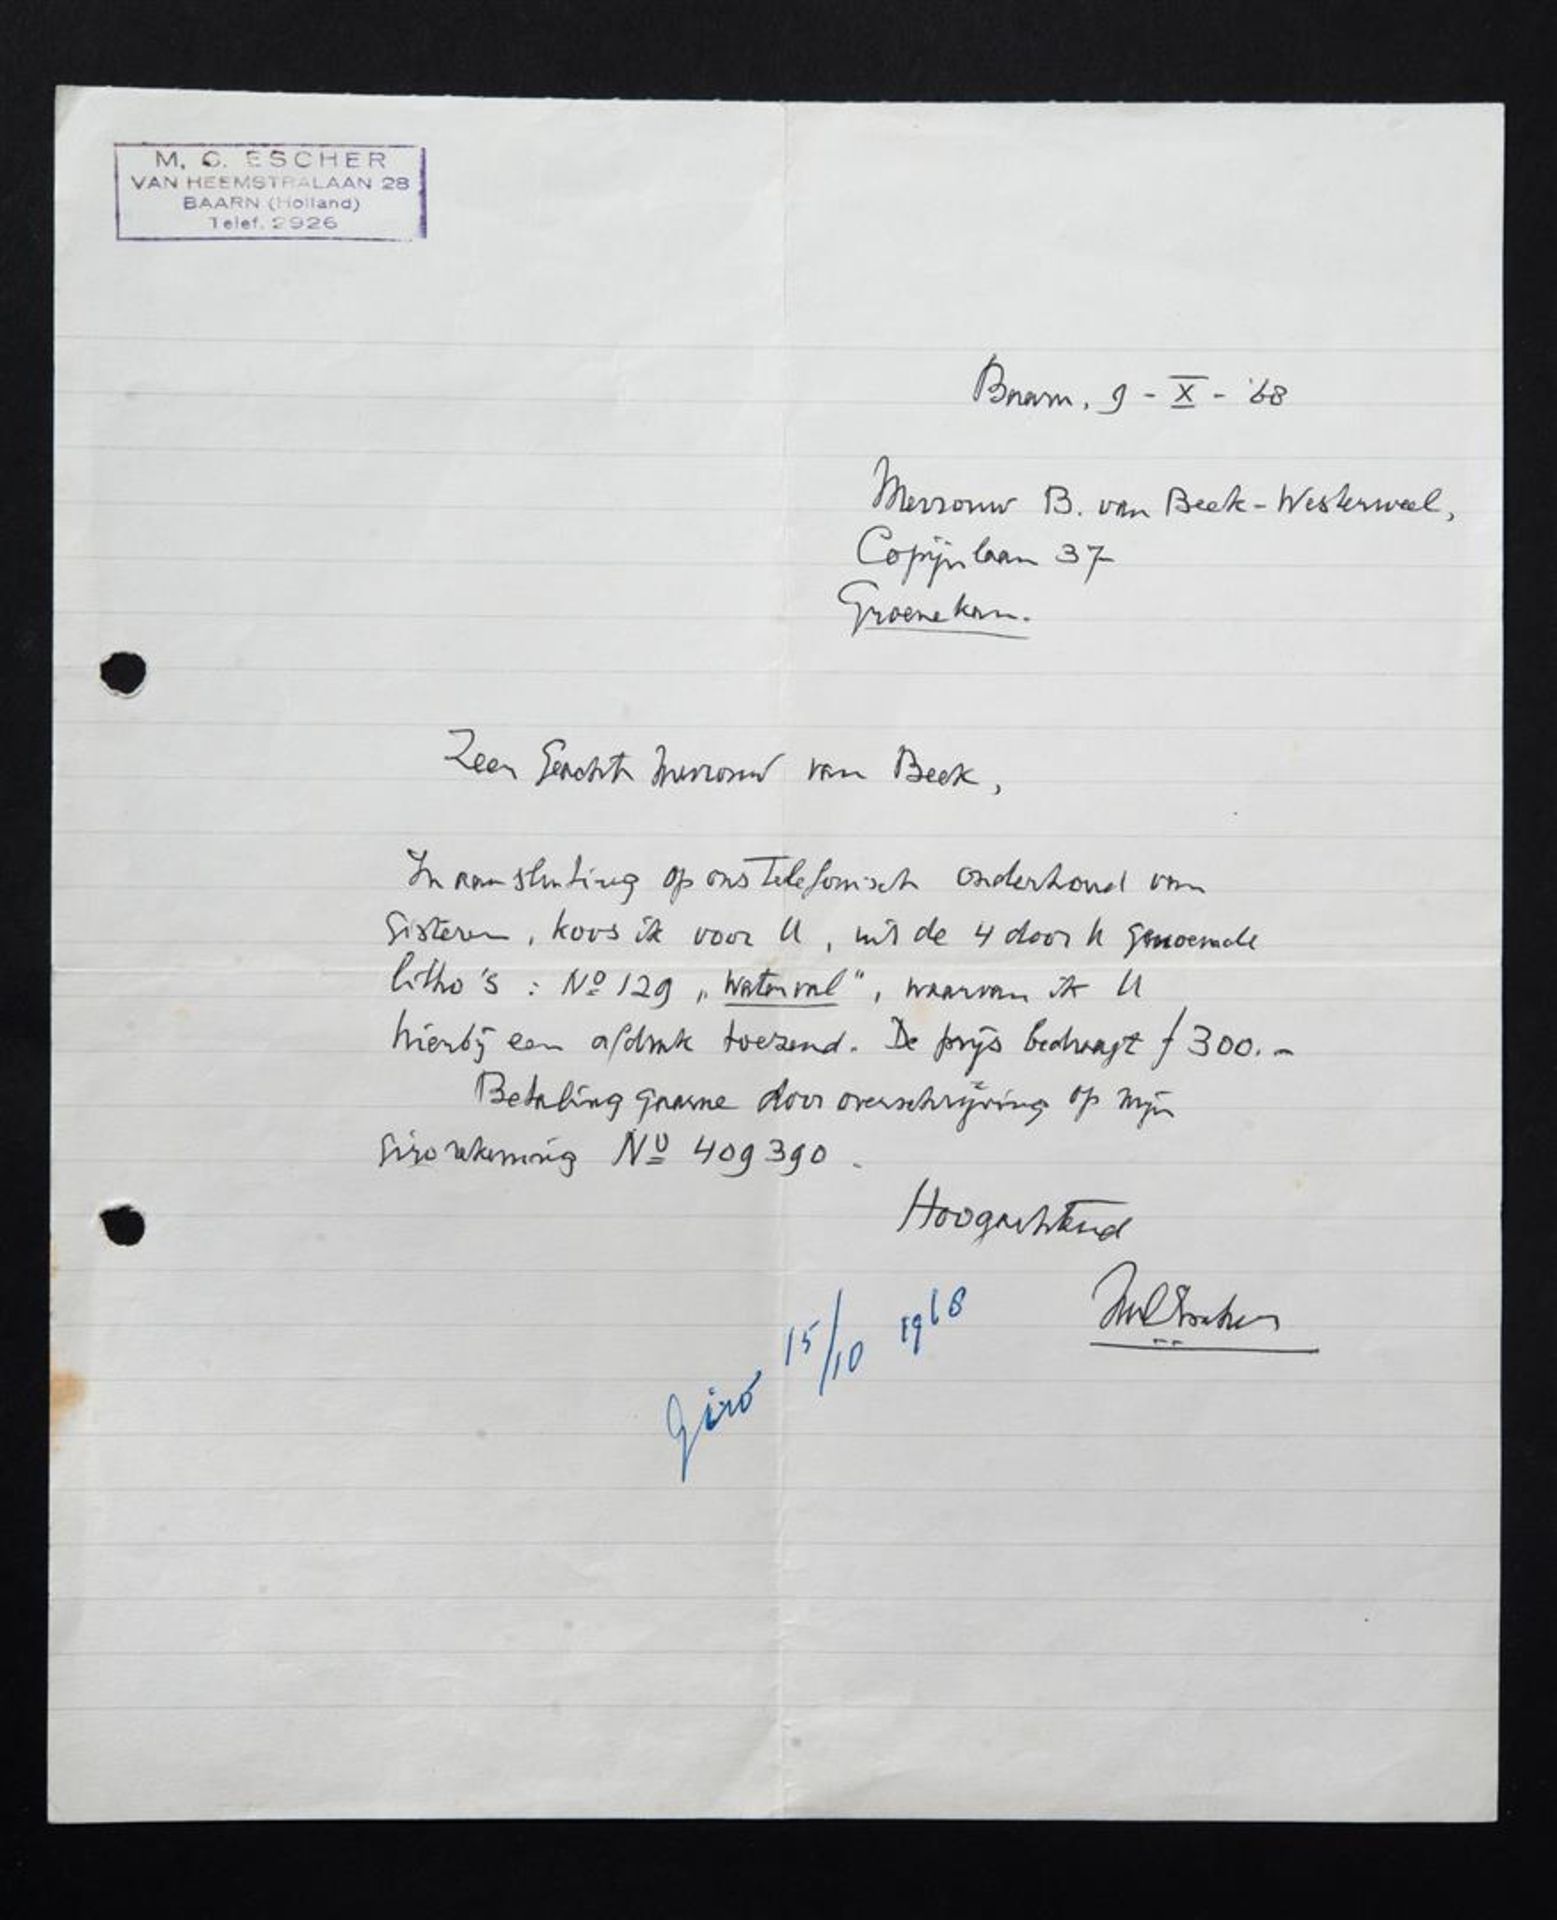 M. C. ESCHER
VAN HEEMSTRALAAN 28
BAARN (Holland)
Telef. 2926
Baarn, 9 - X - '68
Mevrouw B. van Beek-Westerweel,
Copijnlaan 37
Groenekan.
Zeer Geachte Mevrouw van Beek,
In aansluiting op ons telefonisch onderhoud van
gisteren, koos ik voor U, uit de 4 door U genoemde
litho's : Nº 129 „Waterval", waarvan ik U
hierbij een afdruk toezend. De prijs bedraagt f 300.-
Betaling gaarne door overschrijving op mijn
girorekening Nº 409390.
Hoogachtend
MCEscher
Giro 15/10 1968